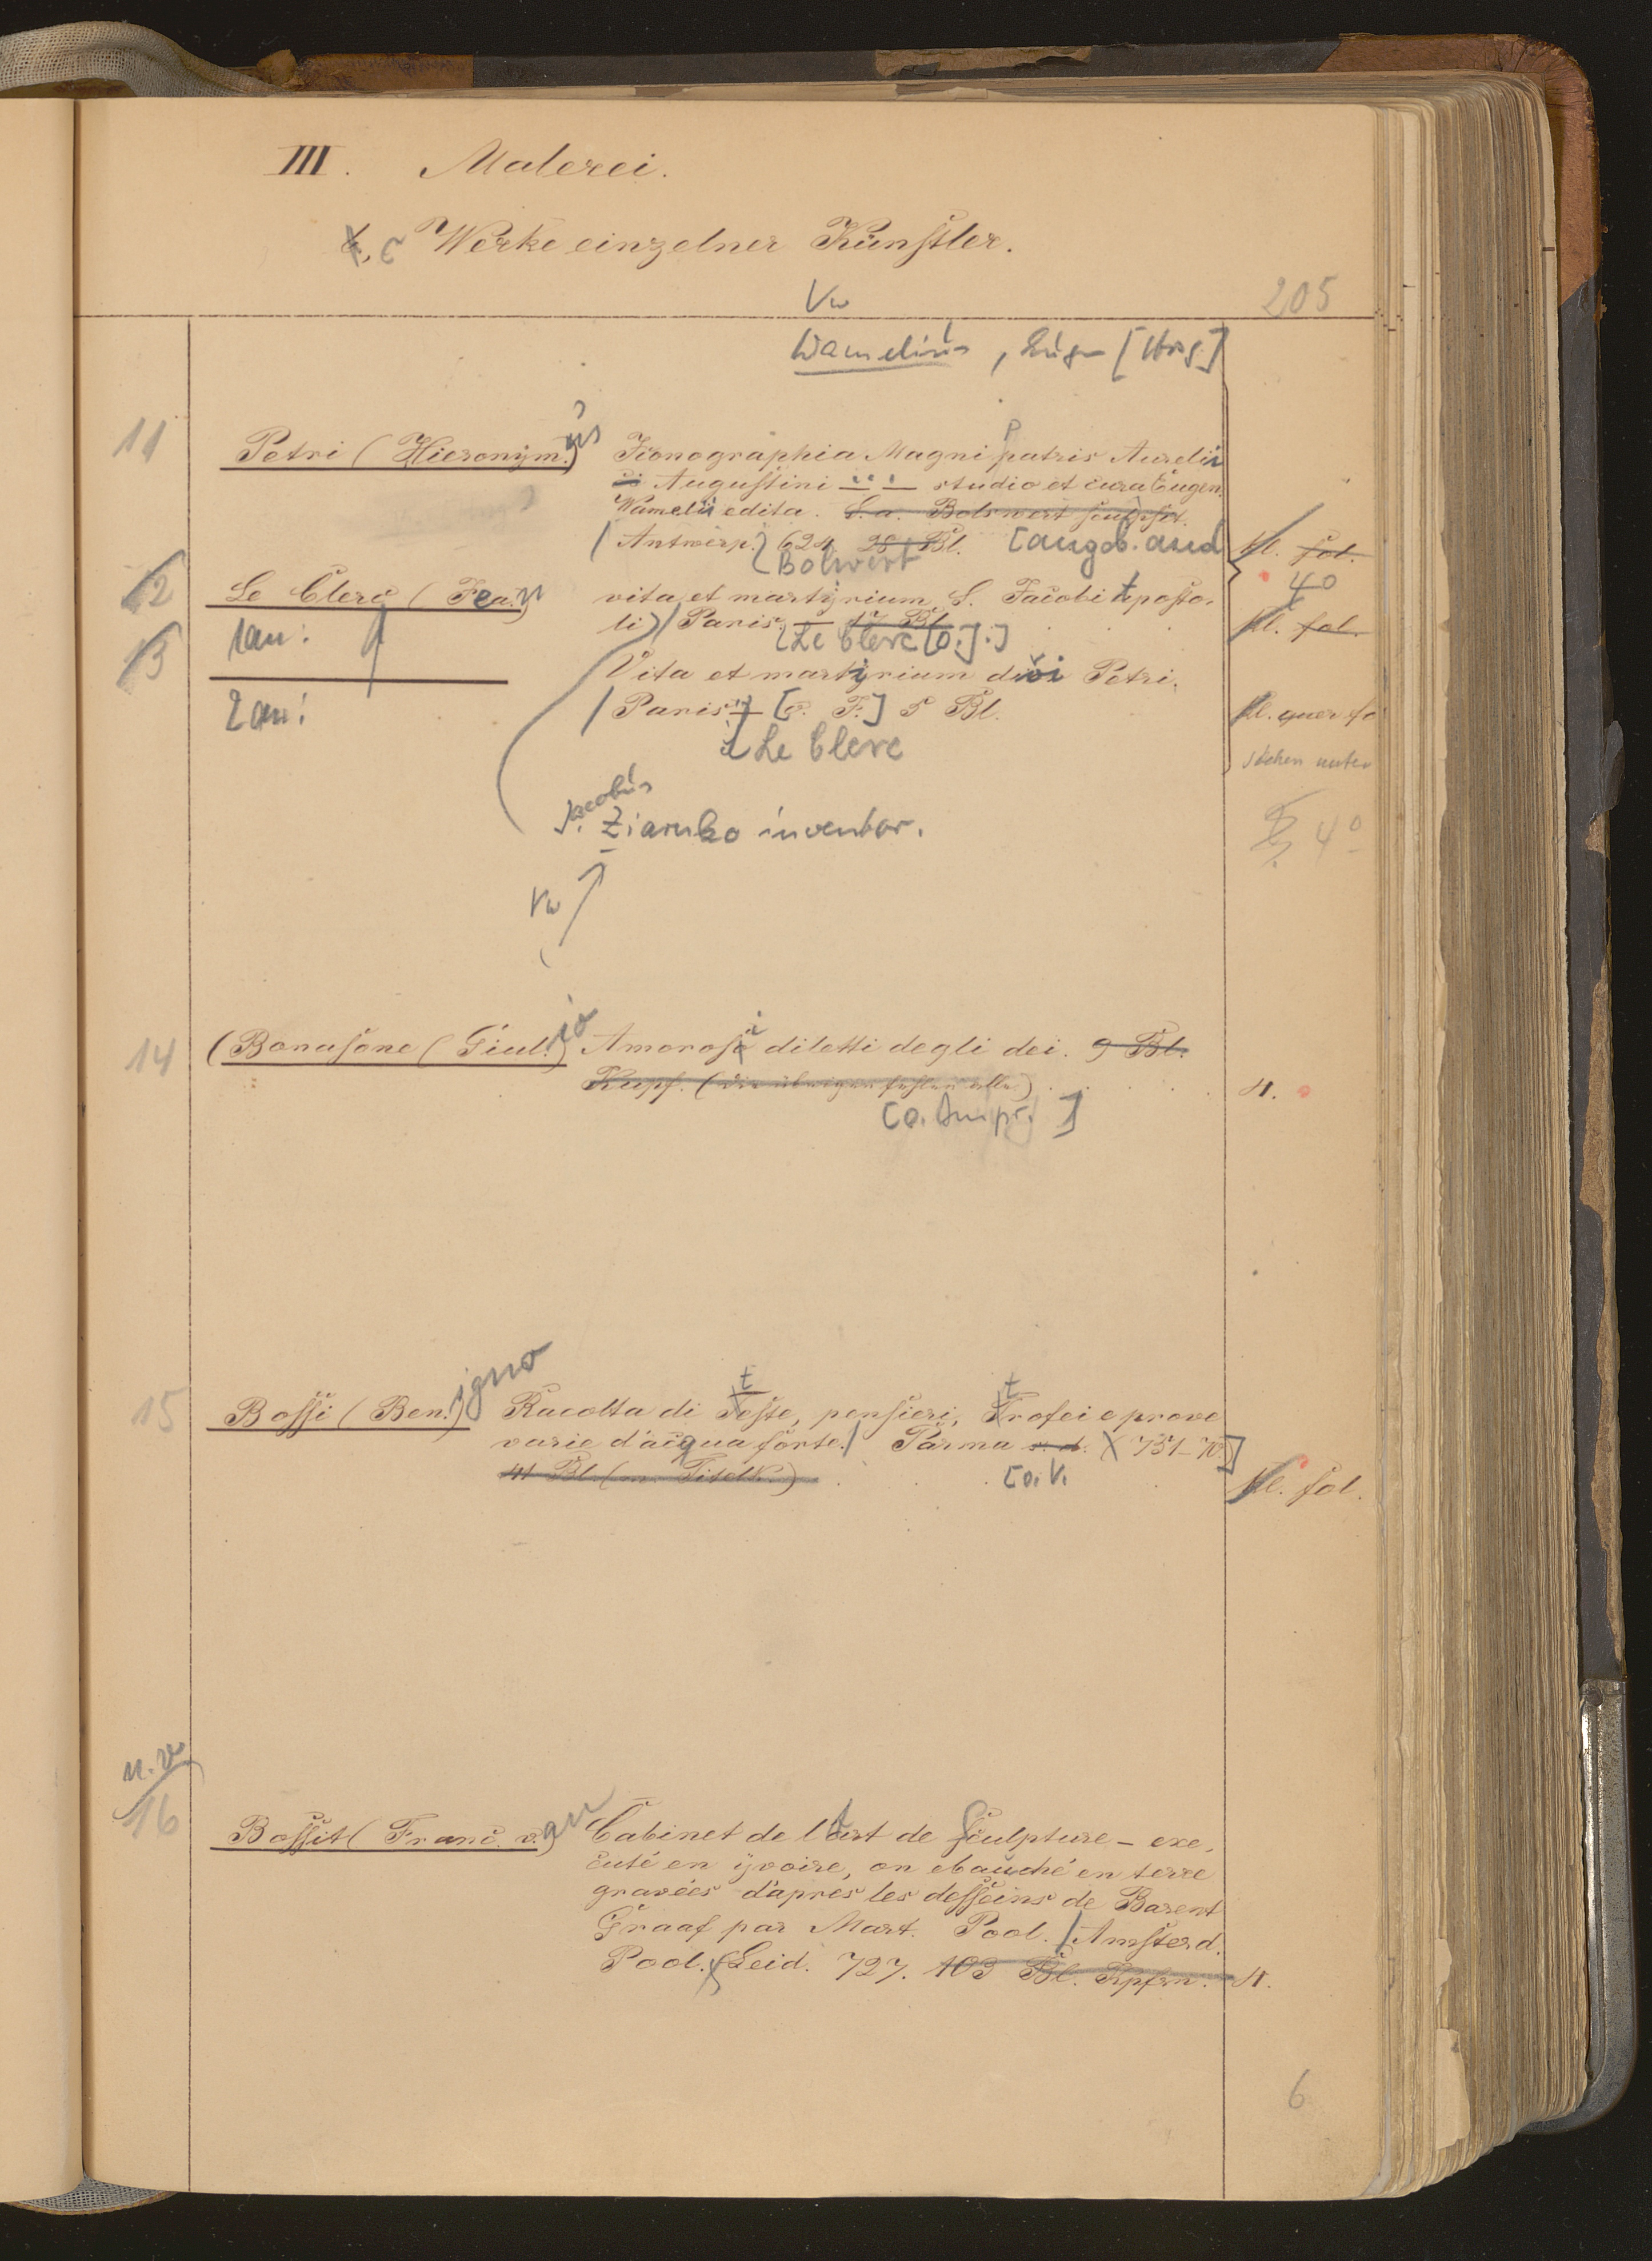 III. Malerei.
b, c Werke einzelner Künstler.
Vw
205
Wamelius, Eugen [Hrsg]
11 Petri (Hieronym.)us Iconographia Magni patris Aurelii
Augustini studio et cura Eugen.
Wamelii edita. S. a. Bolswert sculpsit.
Antwerp. 624 28 Bl. [angeb. an d kl. fol.
Bolswert 4°
12 Le Clerc (Fra.n vita et martyrium S. Jacobi Aposto.
li) Paris 17 Bl. kl. fol.
1 an: [Le Clerc [o. J.]
13 Vita et martyrium divi Petri.
2 an: Paris [C. F.] 5 Bl. kl. quer fo
Le Clerc
stehen unter
Jacobus
J. Ziarnko inventor.
4°
Vw
14 (Bonasone (Giul.)io Amorosi diletti degli dei. 9 Bl.
Kupf. (die übrigen fehlen alle) 4.
[o. Impr.]
15 Bossi (Ben.)igno Racolta di Teste, pensieri, Trofei e prove
varie d'acqua forte. Parma 751-70]
41 Bl. (m. Titelk.) [o. V. kl. fol.
n. v.
16 Bossit (Franc. v.)an Cabinet de l'art de sculpture – exe.
cuté en yvoire, on ebauché en terre
gravées d'aprés les desseins de Barent
Graaf par Mart. Pool. Amsterd.
Pool. Leid. 727. 103 Bl. Kpfrn. 4.
6